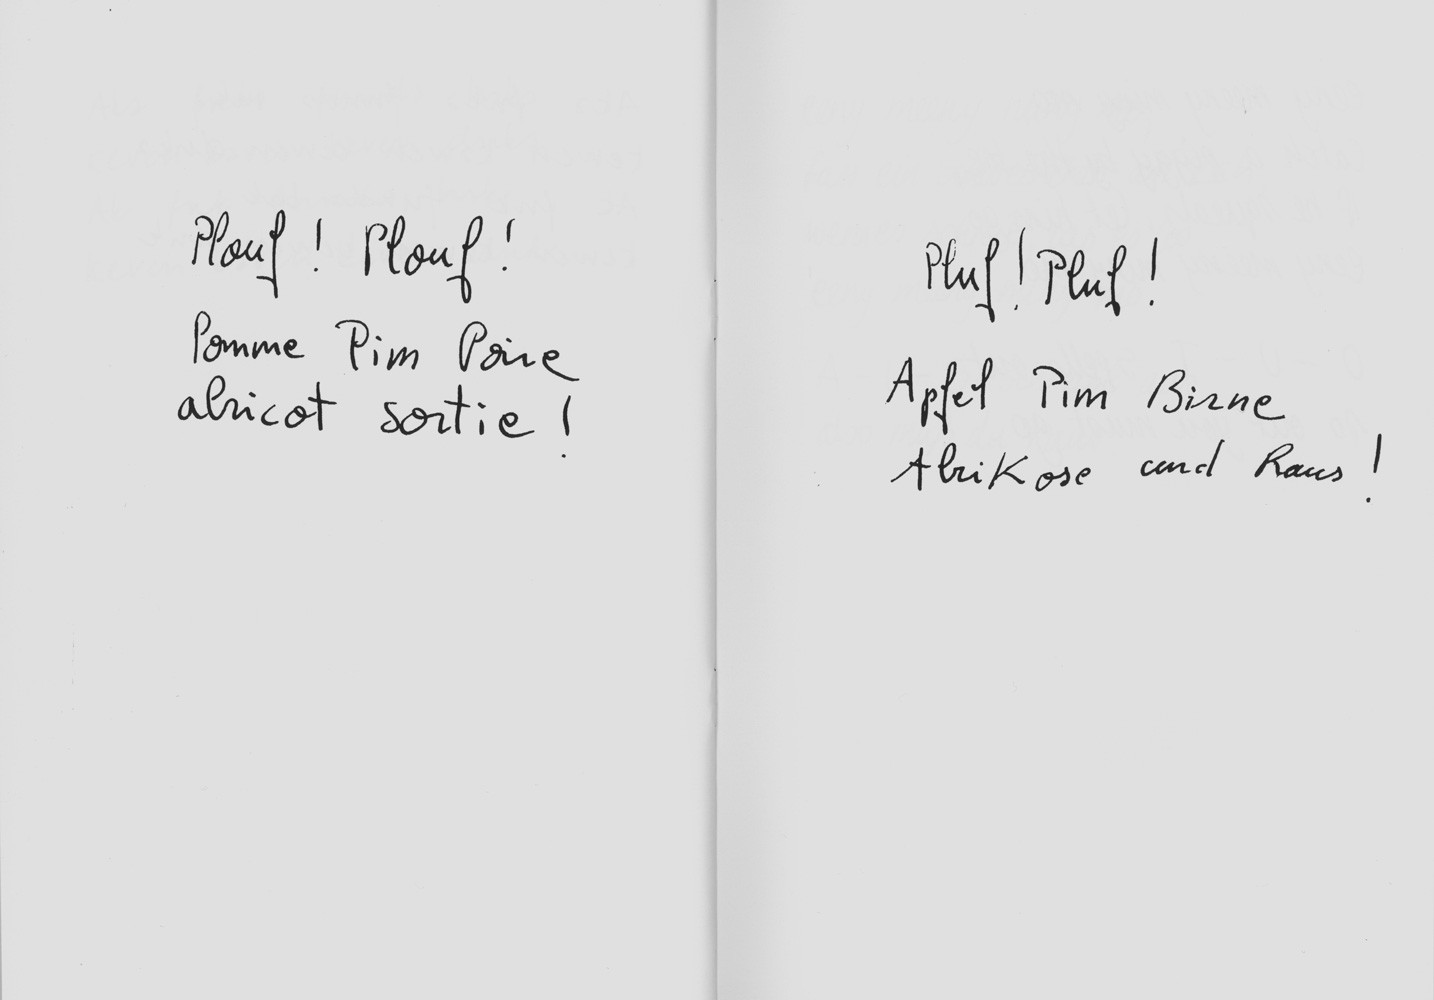 Plouf! Plouf!
Pomme Pim Poire
abricot sortie!
Pluf! Pluf!
Apfel Pim Birne
Abrikose und Raus!